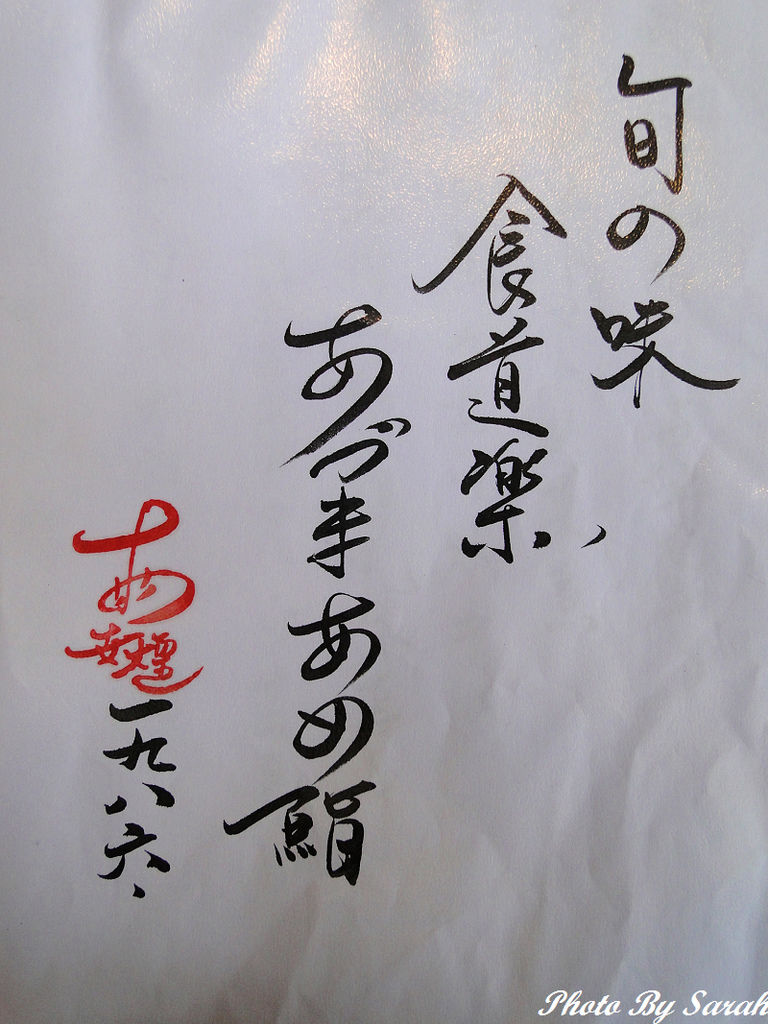 旬の味
食道楽、
あづま あめ鮨
あめ
一九八六、
Photo By Sarah